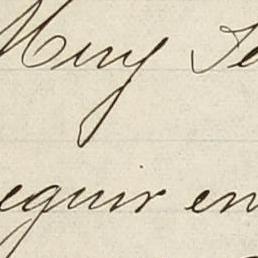 Muy Se
eguir en